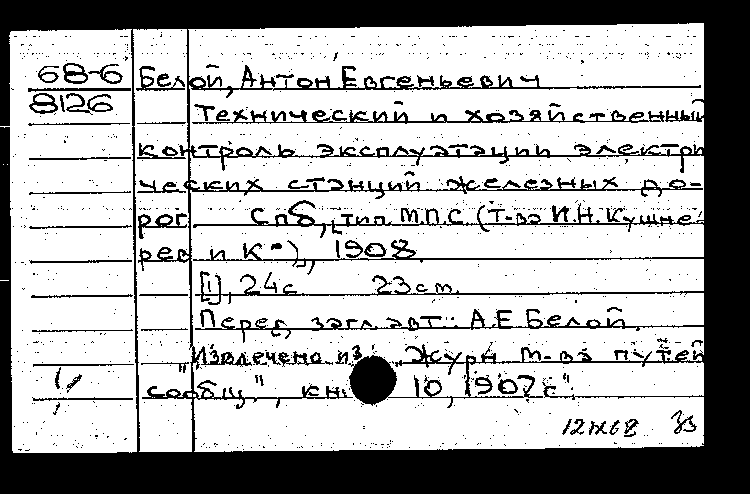 68-6
8126
Белой, Антон Евгеньевич
Технический и хозяйственный
контроль эксплуатации электри
ческих станций железных до-
рог. Спб, тип. М.П.С. (Т-ва И.Н. Кушне-
рев и К°), 1908.
[1], 24 с 23 см.
Перед загл. авт.: А.Е Белой.
"Извлечено из: "Журн М-ва путей
сообщ.", кн. 10, 1907 г".
12 IX 68